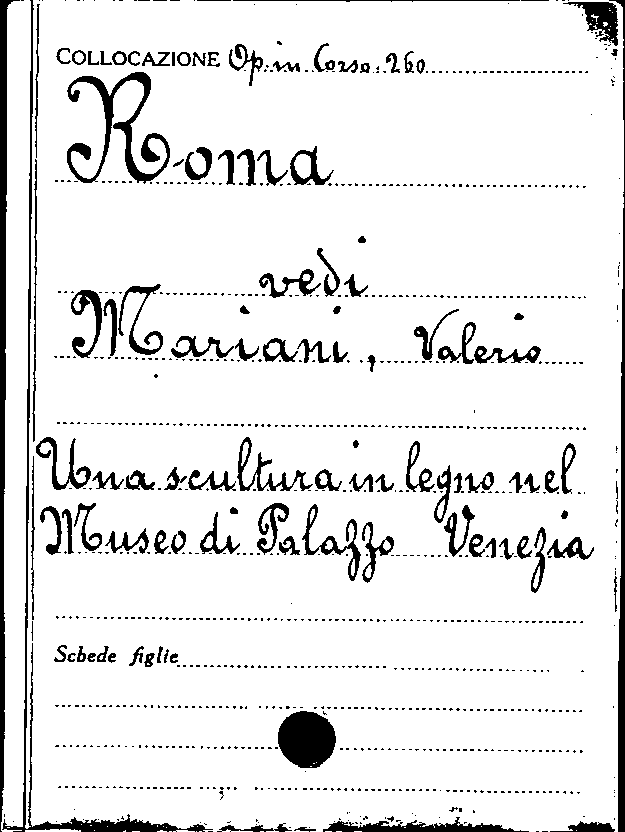 COLLOCAZIONE Op. in Corso. 260
Roma
vedi
Mariani, Valerio
Una scultura in legno nel
Museo di Palazzo Venezia
Schede figlie